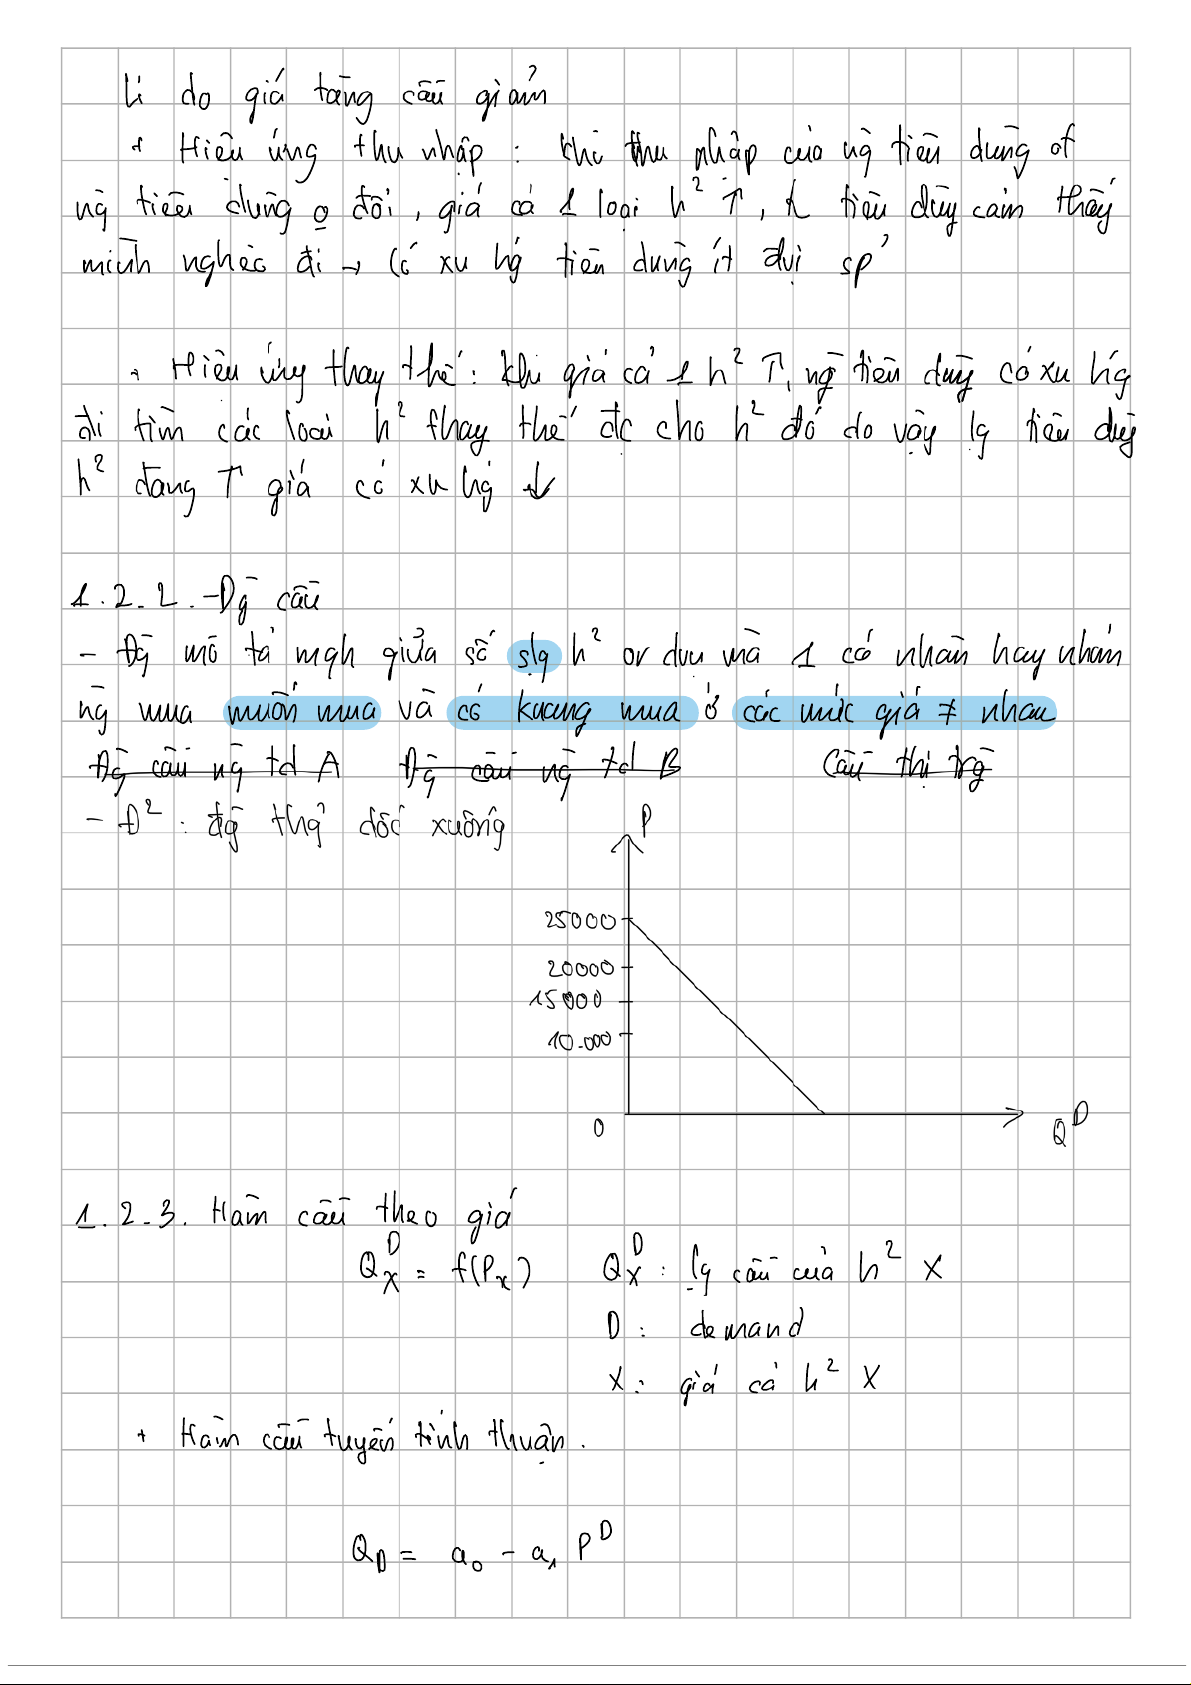 Lí do giá tăng cầu giảm
+ Hiệu ứng thu nhập : khi thu nhập của ng tiêu dùng of
ng tiêu dùng o đổi, giá cả 1 loại h² ↑, tiêu dùg cảm thấy
mình nghèo đi → có xu hg tiêu dùng ít đvị sp'
+ Hiệu ứng thay thế : khi giá cả 1 h² ↑, ng tiêu dùg có xu hg
đi tìm các loại h² thay thế đc cho h² đó do vậy lg tiêu dùg
h² đang ↑ giá có xu hg ↓
1.2.2. Đg cầu
- Đg mô tả mqh giữa số slg h² or dvụ mà 1 cá nhân hay nhóm
ng mua muốn mua và có knăng mua ở các mức giá ≠ nhau
Đg cầu ng td A Đg cầu ng td B Cầu thị trg
- Đ² : đg thg dốc xuống
P
25000
20000
15000
10.000
0
Q^D
1.2.3. Hàm cầu theo giá
Q_X^D = f(P_x) Q_X^D : lg cầu của h² X
D : demand
X : giá cả h² X
+ Hàm cầu tuyến tính thuận.
Q_D = a_0 - a_1 P^D